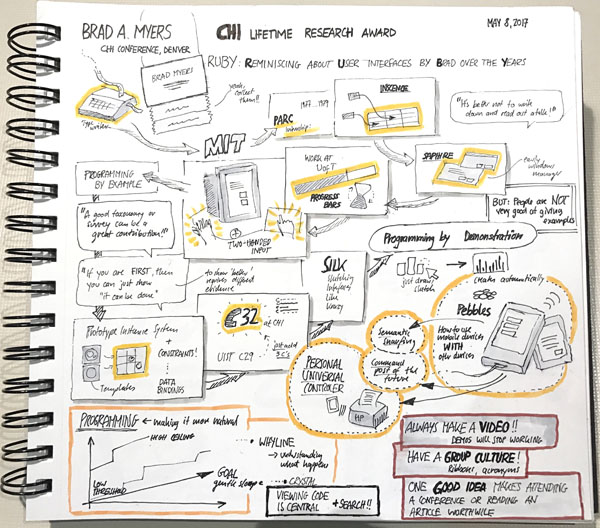 BRAD A. MYERS
CHI CONFERENCE, DENVER
CHI LIFETIME RESEARCH AWARD
MAY 8, 2017
RUBY: REMINISCING ABOUT USER INTERFACES BY BRAD OVER THE YEARS
BRAD MYERS
yeah, collect them!!
Typewriter
MIT
PARC
internship
INSCENCE
"It's better not to write
down and read out a talk!"
SAPPHIRE
early
windows
manager
PROGRAMMING
BY EXAMPLE
WORK AT
UOFT
PROGRESS
BARS
BUT: PEOPLE ARE NOT
very good at giving
examples
"A good taxonomy or
survey can be a
great contribution!!"
TWO-HANDED
INPUT
Programming by Demonstration
"If you are FIRST, then
you can just show
"it can be done"
to show 'better'
requires different
evidence
SILK
Sketching
Interfaces
Like
Krazy
just draw/
sketch
creates automatically
Pebbles
How to use
mobile devices
WITH
other devices
C32 at CHI
UIST C29
just add
3 C's
Prototype Instance System
+ CONSTRAINTS!
+
DATA
BINDINGS
Templates
Semantic
Snarfing
Command
Post of the
future
PERSONAL
UNIVERSAL
CONTROLLER
HP
PROGRAMMING
making it more natural
HIGH CEILING
LOW
THRESHOLD
GOAL
gentle slope
WHYLINE
understanding
what happens
CRYSTAL
VIEWING CODE
IS CENTRAL
+ SEARCH!!
ALWAYS MAKE A VIDEO!!
DEMOS WILL STOP WORKING
HAVE A GROUP CULTURE!
Ribbons, acronyms
ONE GOOD IDEA MAKES ATTENDING
A CONFERENCE OR READING AN
ARTICLE WORTHWILE